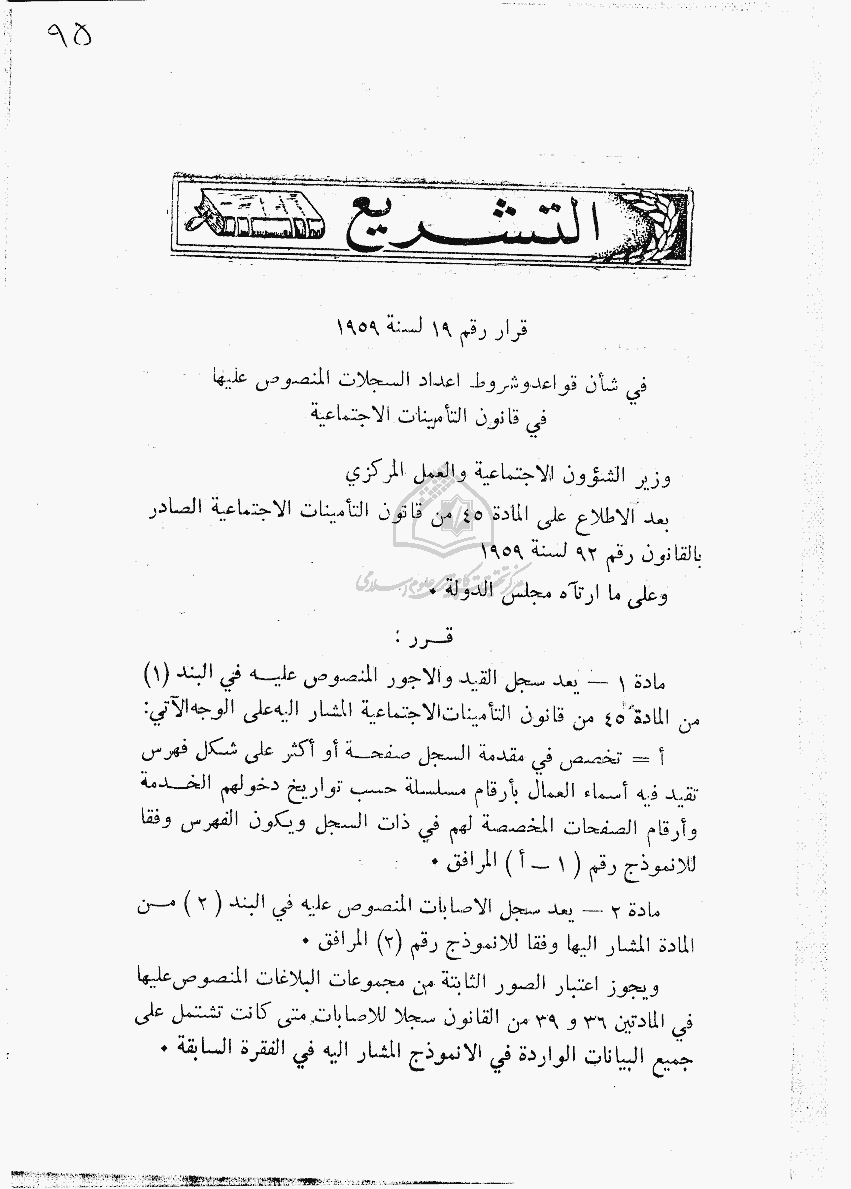 ٩٥
التشريع
قرار رقم ١٩ لسنة ١٩٥٩
في شأن قواعدوشروط اعداد السجلات المنصوص عليها
في قانون التأمينات الاجتماعية
وزير الشؤون الاجتماعية والعمل المركزي
بعد الاطلاع على المادة ٤٥ من قانون التأمينات الاجتماعية الصادر
بالقانون رقم ٩٢ لسنة ١٩٥٩
وعلى ما ارتآه مجلس الدولة ٠
قــرر :
مادة ١ — يعد سجل القيد والاجور المنصوص عليــه في البند (١)
من المادة ٤٥ من قانون التأمينات الاجتماعية المشار اليه على الوجه الآتي:
أ = تخصص في مقدمة السجل صفحــة أو أكثر على شكل فهرس
تقيد فيه أسماء العمال بأرقام مسلسلة حسب تواريخ دخولهم الخــدمة
وأرقام الصفحات المخصصة لهم في ذات السجل ويكون الفهرس وفقا
للانموذج رقم ( ١ — أ ) المرافق ٠
مادة ٢ — يعد سجل الاصابات المنصوص عليه في البند ( ٢ ) مــن
المادة المشار اليها وفقا للانموذج رقم (٢) المرافق ٠
ويجوز اعتبار الصور الثابتة من مجموعات البلاغات المنصوص عليها
في المادتين ٣٦ و ٣٩ من القانون سجلا للاصابات متى كانت تشتمل على
جميع البيانات الواردة في الانموذج المشار اليه في الفقرة السابقة ٠